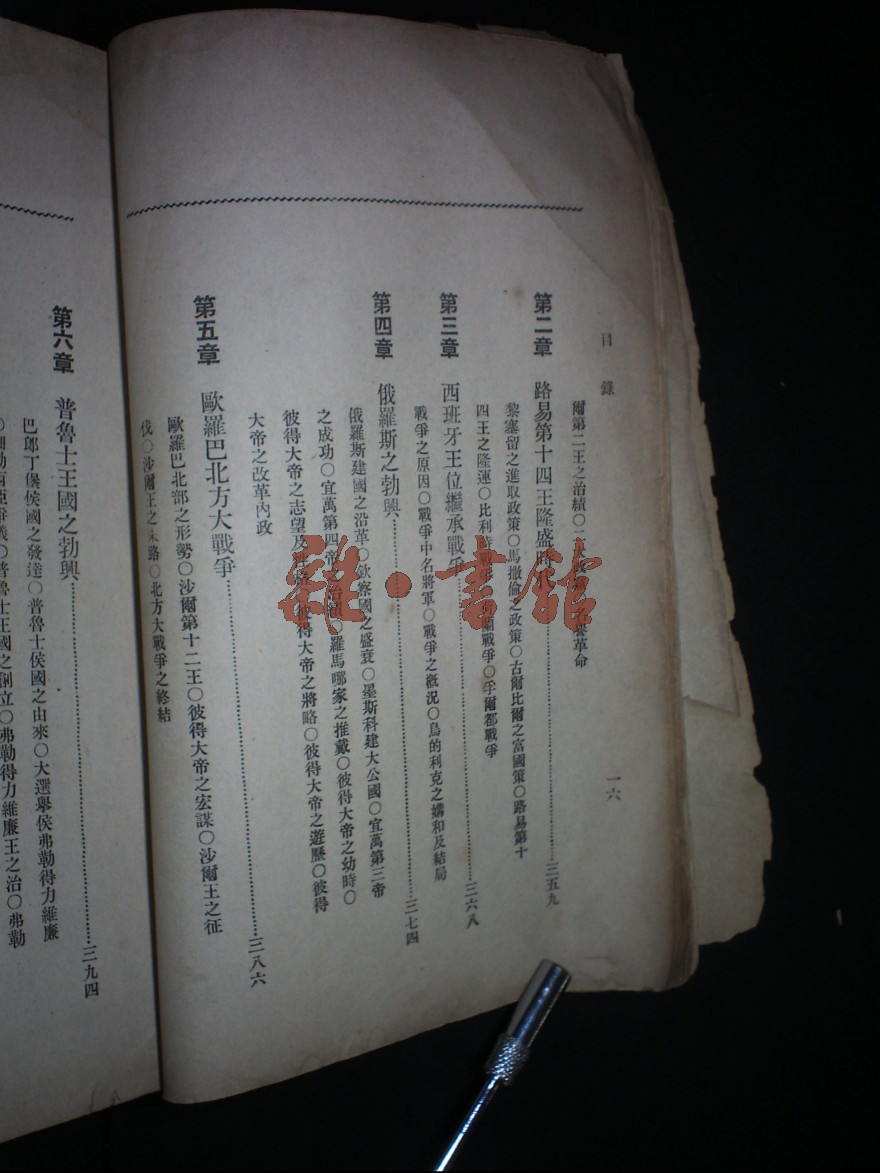 目錄
一六
爾第二王之治績〇二大改〇名譽革命
第二章 路易第十四王隆盛時代……三五九
黎塞留之進取政策〇馬撒倫之政策〇古爾比爾之富國策〇路易第十
四王之隆運〇比利時戰爭〇荷蘭戰爭〇孚爾都戰爭
第三章 西班牙王位繼承戰爭……三六八
戰爭之原因〇戰爭中名將軍〇戰爭之概況〇烏的利克之媾和及結局
第四章 俄羅斯之勃興……三七四
俄羅斯建國之沿革〇欽察國之盛衰〇墨斯科建大公國〇宜萬第三帝
之成功〇宜萬第四帝之治績〇羅馬哪家之推戴〇彼得大帝之幼時〇
彼得大帝之志望及性格〇彼得大帝之將略〇彼得大帝之遊歷〇彼得
大帝之改革內政
第五章 歐羅巴北方大戰爭……三八六
歐羅巴北部之形勢〇沙爾第十二王〇彼得大帝之宏謀〇沙爾王之征
伐〇沙爾王之末路〇北方大戰爭之終結
第六章 普魯士王國之勃興……三九四
巴郎丁堡侯國之發達〇普魯士侯國之由來〇大選舉侯弗勒得力維廉
普魯士王國之創立〇弗勒得力維廉王之治〇弗勒
雜·書館